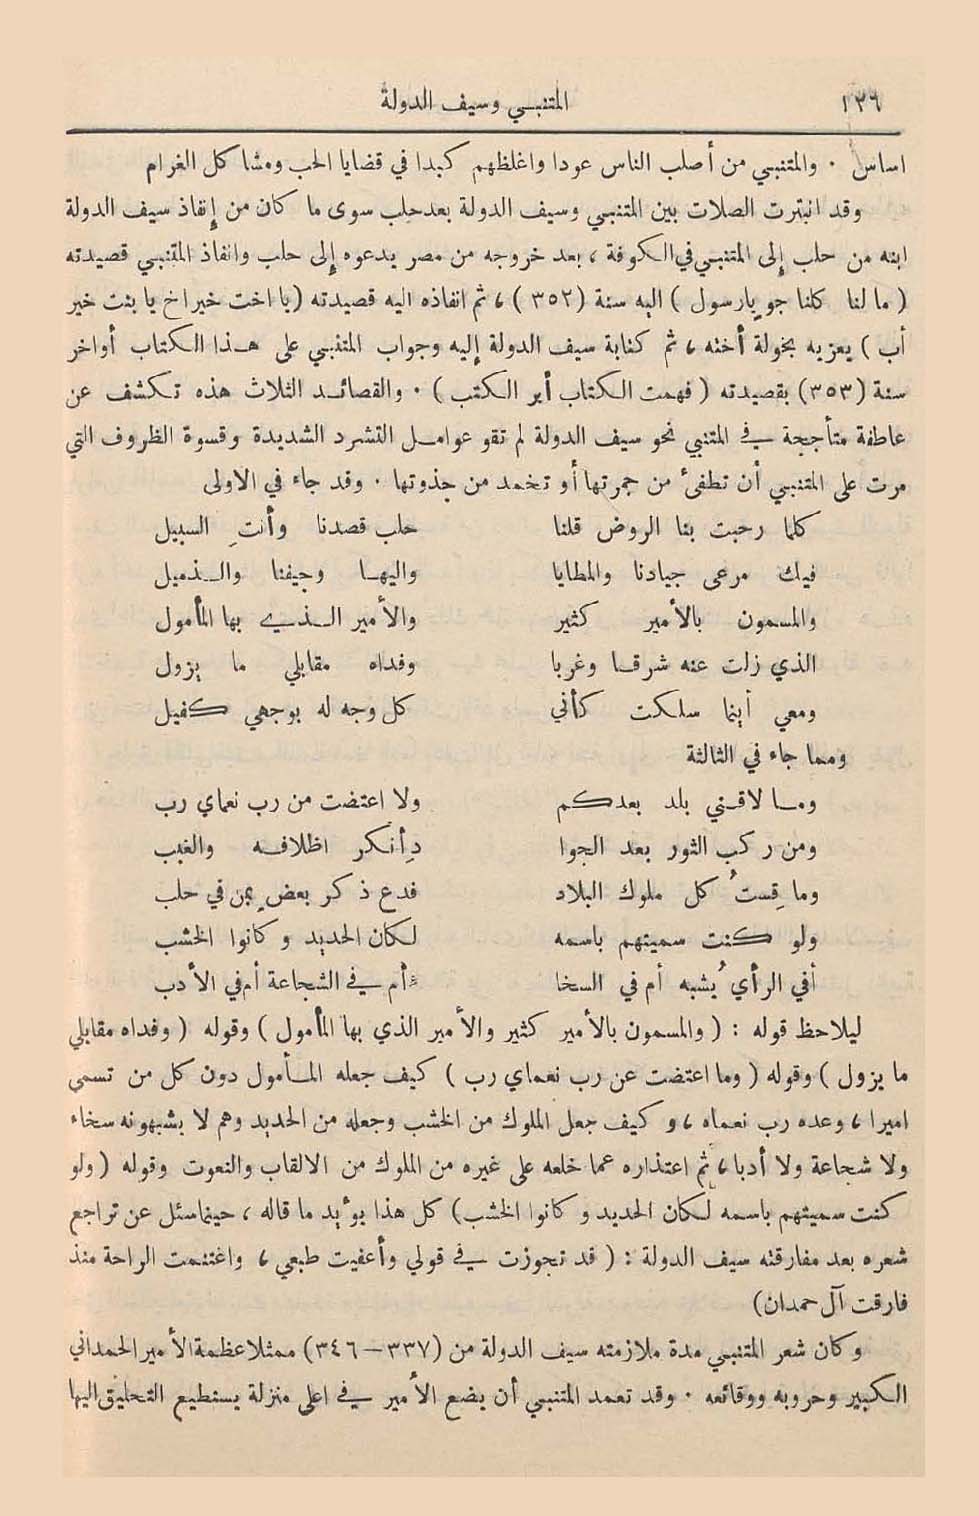 ١٣٦ المتنبي وسيف الدولة
اساس . والمتنبي من أصلب الناس عودا واغلظهم كبدا في قضايا الحب ومشاكل الغرام
وقد انبترت الصلات بين المتنبي وسيف الدولة بعد حلب سوى ما كان من إنفاذ سيف الدولة
ابنه من حلب إلى المتنبي في الكوفة ، بعد خروجه من مصر يدعوه إلى حلب وانفاذ المتنبي قصيدته
( ما لنا كلنا جوٍ يارسول ) اليه سنة (٣٥٢) ، ثم انفاذه اليه قصيدته (يا اخت خير اخ يا بنت خير
أب ) يعزيه بخولة أخته ، ثم كتابة سيف الدولة إليه وجواب المتنبي على هذا الكتاب أواخر
سنة (٣٥٣) بقصيدته ( فهمت الكتاب أبر الكتب ) . والقصائد الثلاث هذه تكشف عن
عاطفة متأججة في المتنبي نحو سيف الدولة لم تقو عوامل التشرد الشديدة وقسوة الظروف التي
مرت على المتنبي أن تطفئ من جمرتها أو تخمد من جذوتها . وقد جاء في الاولى
كلما رحبت بنا الروض قلنا حلب قصدنا وأنتِ السبيل
فيك مرعى جيادنا والمطايا واليها وجيفنا والذميل
والمسمون بالأمير كثير والأمير الذي بها المأمول
الذي زلت عنه شرقا وغربا وفداه مقابلي ما يزول
ومعي أينما سلكت كأني كل وجه له بوجهي كفيل
ومما جاء في الثالثة
وما لاقني بلد بعدكم ولا اعتضت من رب نعماي رب
ومن ركب الثور بعد الجوا دأنكر اظلافه والغبب
وما قِستُ كل ملوك البلاد فدع ذكر بعضٍ بمن في حلب
ولو كنت سميتهم باسمه لكان الحديد وكانوا الخشب
أفي الرأي يُشبه أم في السخا ء أم في الشجاعة أم في الأدب
ليلاحظ قوله : ( والمسمون بالأمير كثير والأمير الذي بها المأمول ) وقوله ( وفداه مقابلي
ما يزول ) وقوله ( وما اعتضت عن رب نعماي رب ) كيف جعله المأمول دون كل من تسمى
اميرا ، وعده رب نعماه ، و كيف جعل الملوك من الخشب وجعله من الحديد وهم لا يشبهونه سخاء
ولا شجاعة ولا أدبا ، ثم اعتذاره عما خلعه على غيره من الملوك من الالقاب والنعوت وقوله ( ولو
كنت سميتهم باسمه لكان الحديد وكانوا الخشب) كل هذا يؤيد ما قاله ، حينما سئل عن تراجع
شعره بعد مفارقته سيف الدولة : ( قد تجوزت في قولي وأعفيت طبعي ، واغتنمت الراحة منذ
فارقت آل حمدان)
وكان شعر المتنبي مدة ملازمته سيف الدولة من (٣٣٧ – ٣٤٦) ممثلا عظمة الأمير الحمداني
الكبير وحروبه ووقائعه . وقد تعمد المتنبي أن يضع الأمير في اعلى منزلة يستطيع التحليق اليها